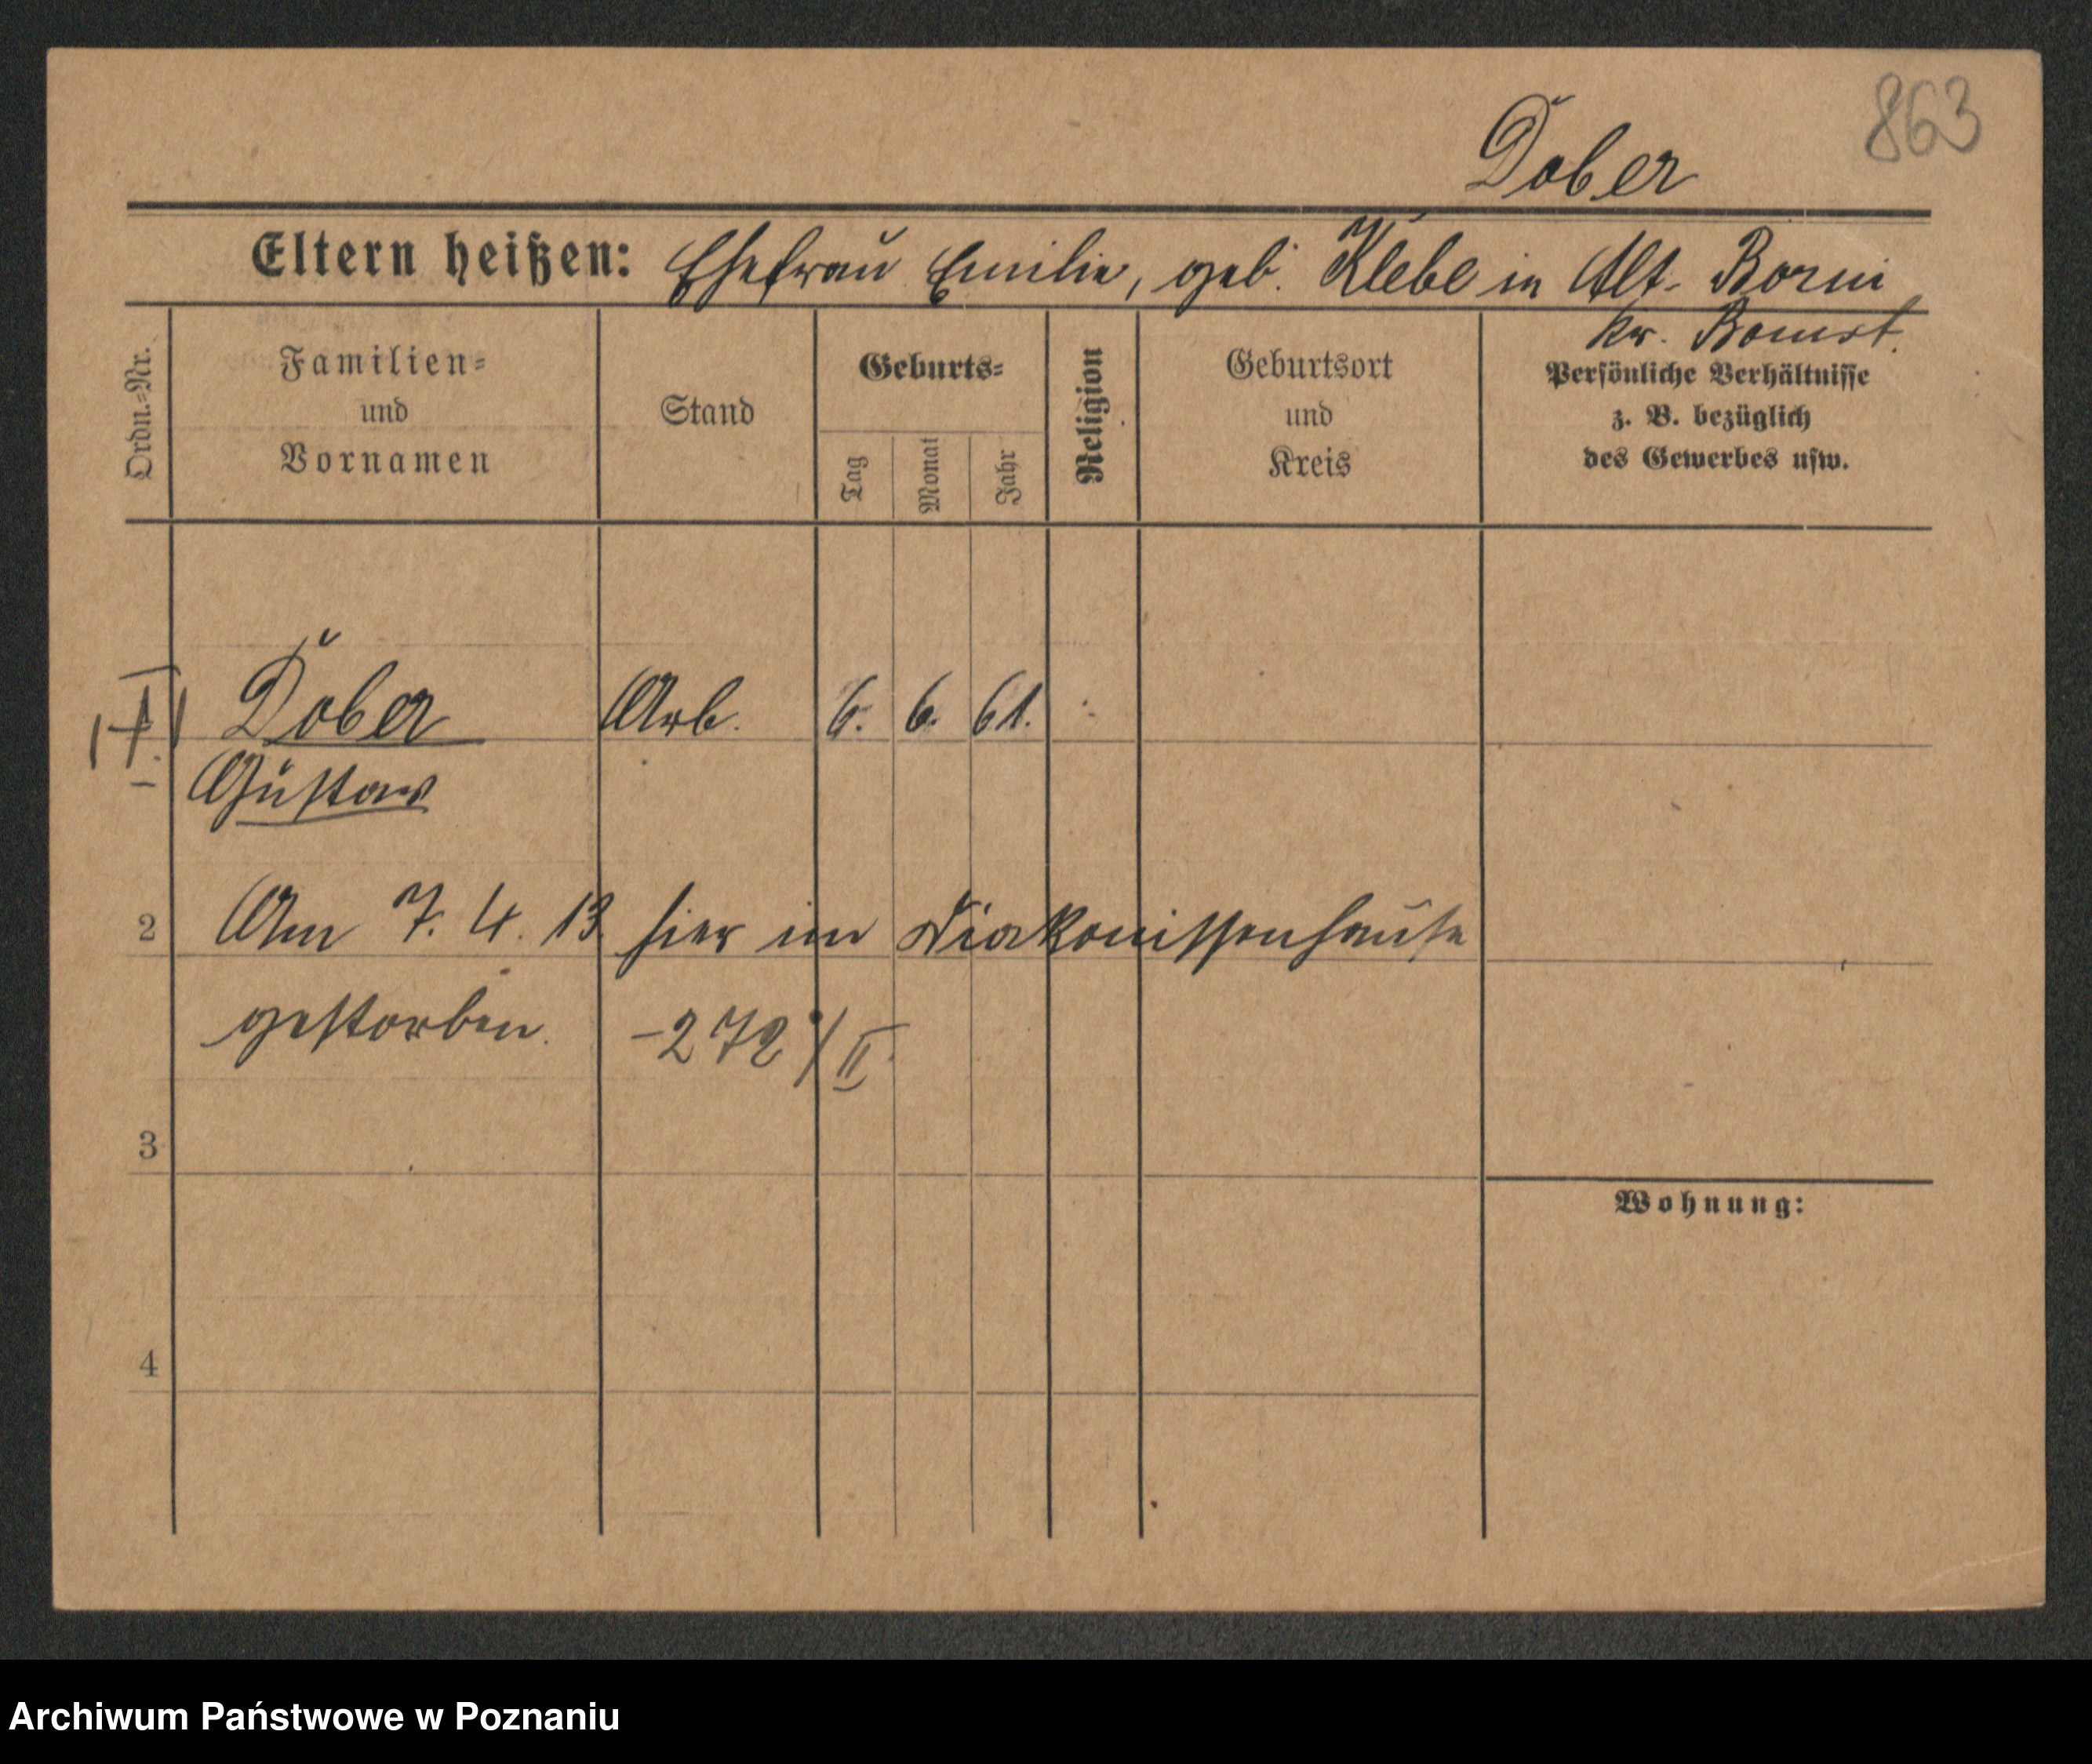 863
Döber
Eltern heißen: Ehefrau Emilie, geb. Klebe in Alt-Borui
Kr. Bomst.
Ordn.-Nr.
Familien-
und
Vornamen
Stand
Geburts-
Tag
Monat
Jahr
Religion
Geburtsort
und
Kreis
Persönliche Verhältnisse
z. B. bezüglich
des Gewerbes usw.
Döber Arb. 6. 6. 61.
Gustav
2 Am 7. 4. 13 hier im Diakonissenhause
gestorben. -272/II.
3
Wohnung:
4
Archiwum Państwowe w Poznaniu